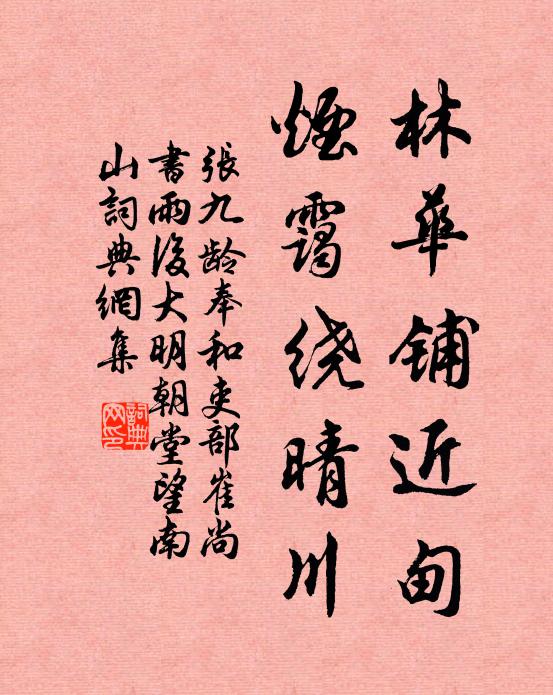 林華鋪近甸
煙靄绕晴川
張九龄奉和吏部崔尚
書雨後大明朝堂望南
山詞典網集
詞典
网印